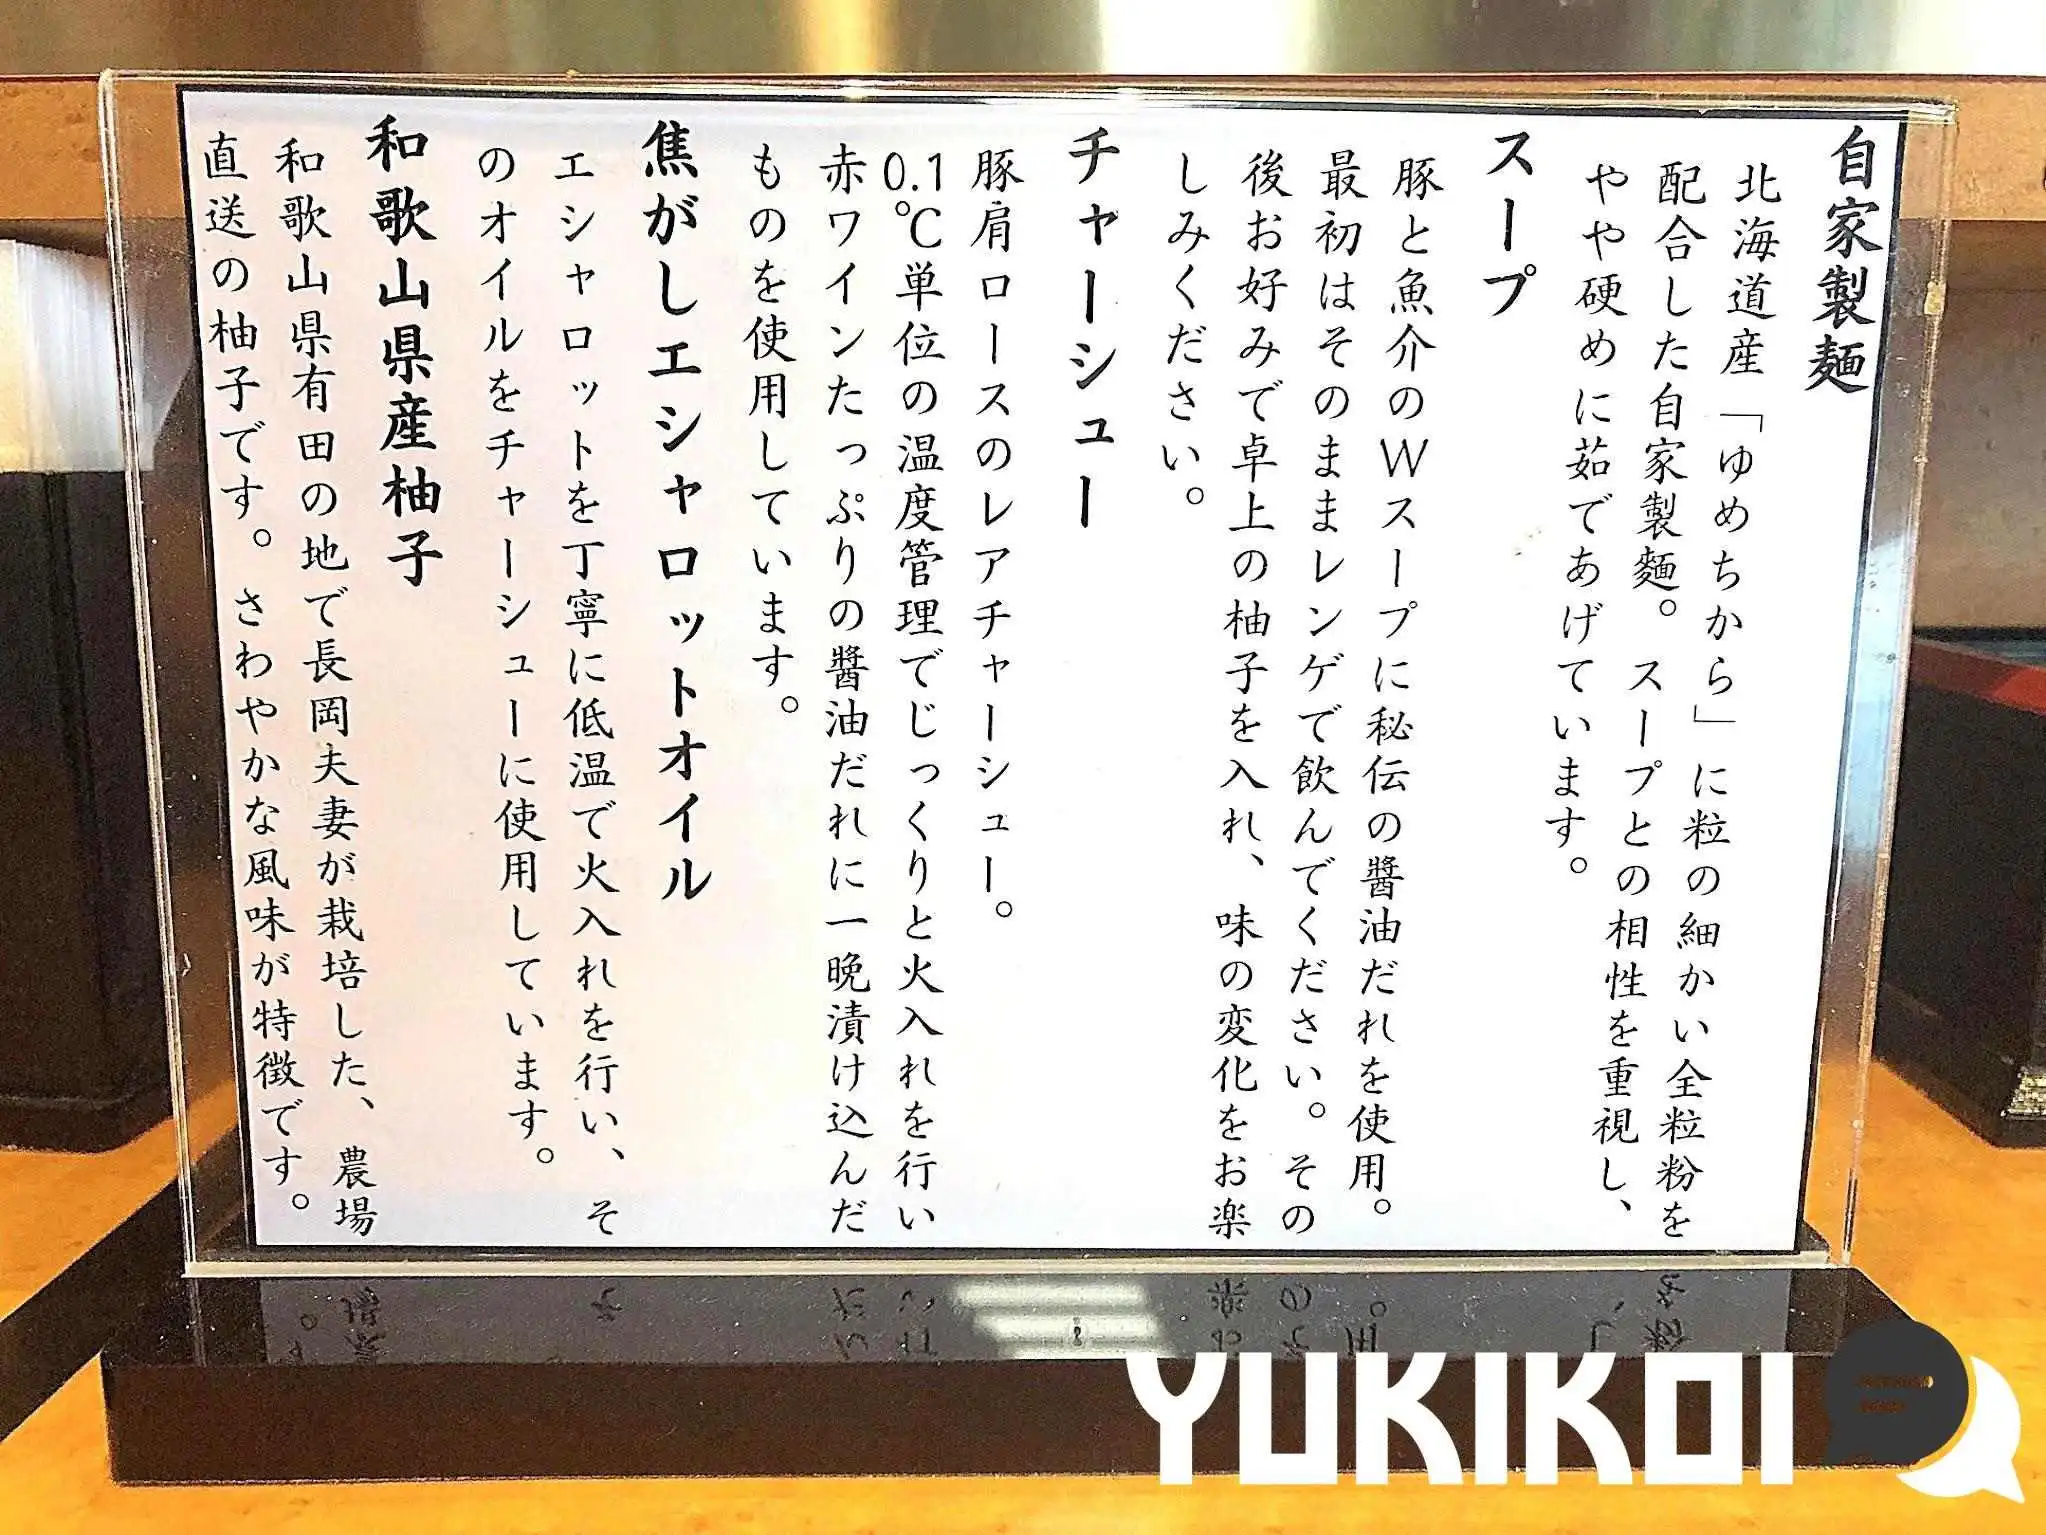 自家製麺
北海道産「ゆめちから」に粒の細かい全粒粉を
配合した自家製麺。スープとの相性を重視し、
やや硬めに茹であげています。
スープ
豚と魚介のWスープに秘伝の醤油だれを使用。
最初はそのままレンゲで飲んでください。その
後お好みで卓上の柚子を入れ、味の変化をお楽
しみください。
チャーシュー
豚肩ロースのレアチャーシュー。
0.1℃単位の温度管理でじっくりと火入れを行い
赤ワインたっぷりの醤油だれに一晩漬け込んだ
ものを使用しています。
焦がしエシャロットオイル
エシャロットを丁寧に低温で火入れを行い、そ
のオイルをチャーシューに使用しています。
和歌山県産柚子
和歌山県有田の地で長岡夫妻が栽培した、農場
直送の柚子です。さわやかな風味が特徴です。
YUKIKOI